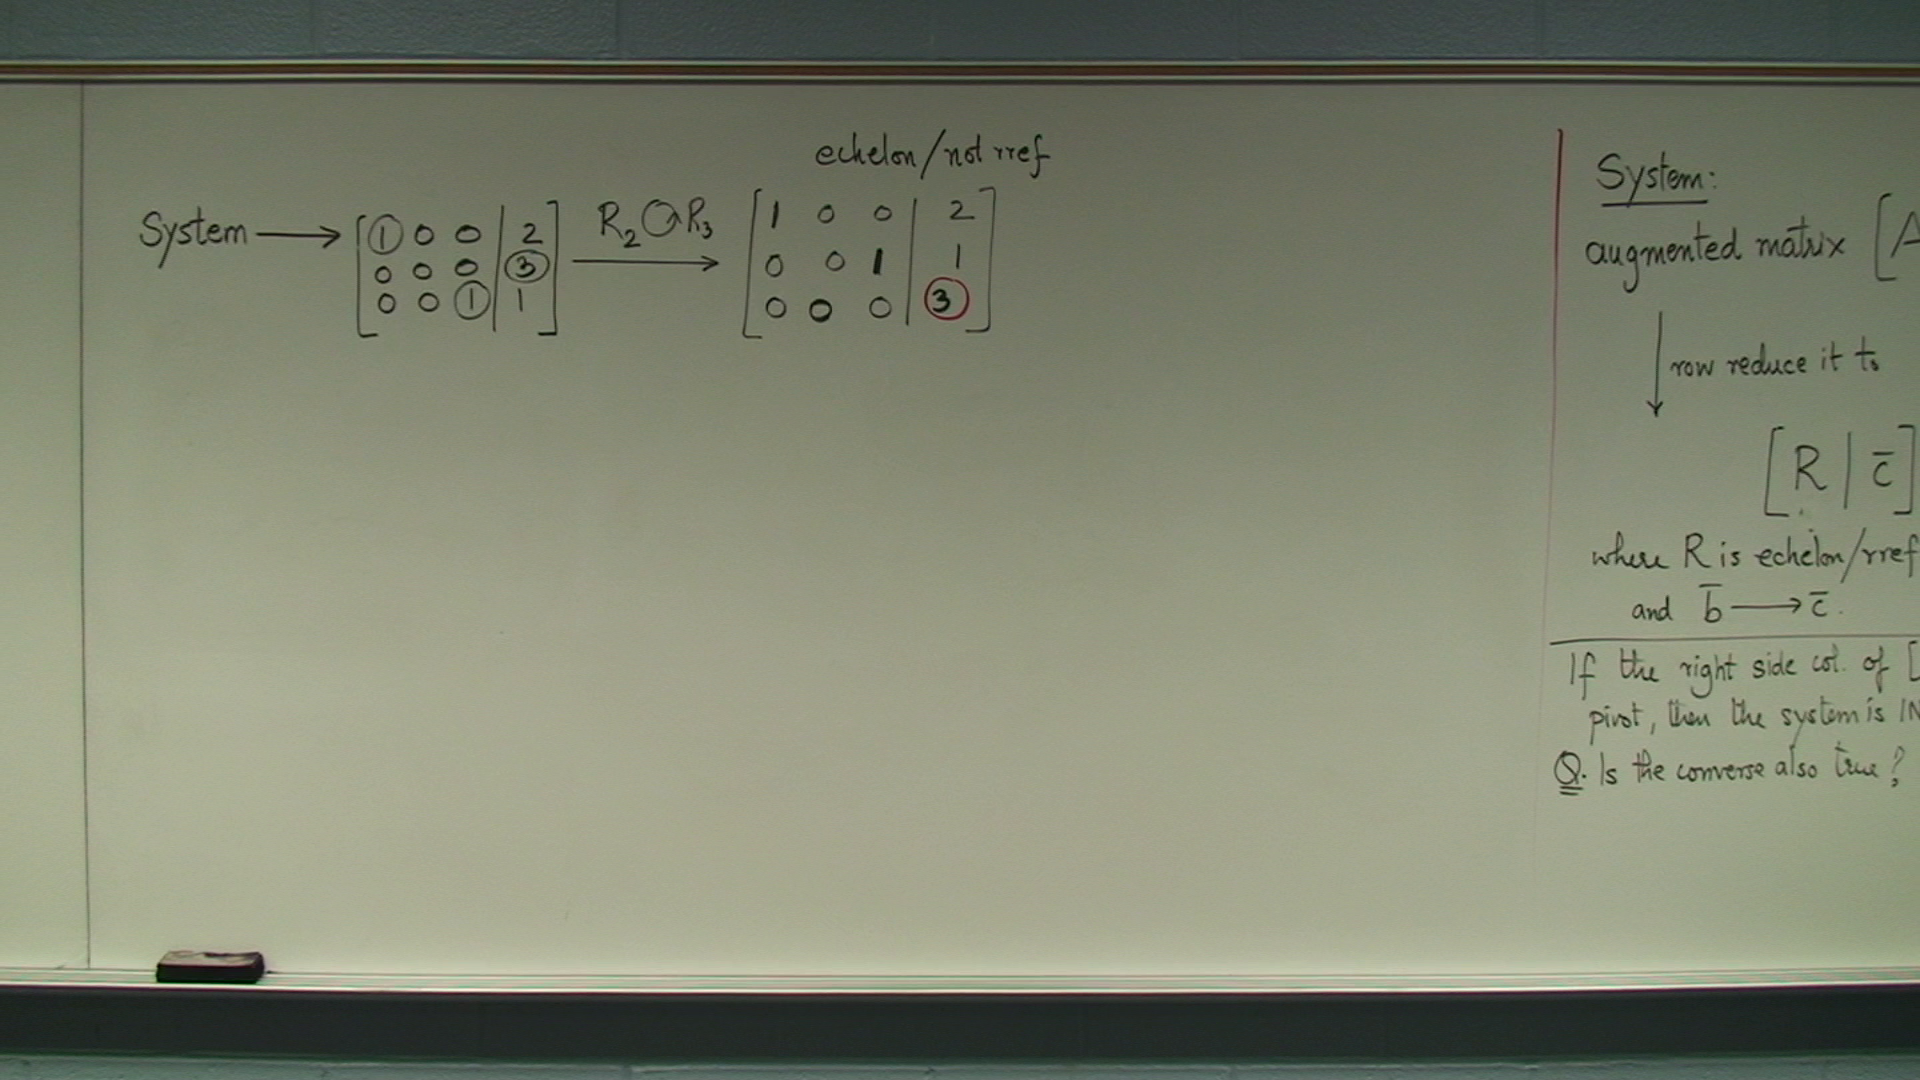 echelon/not rref
System → [1 0 0 | 2] R₂ ↻ R₃ → [1 0 0 | 2]
[0 0 0 | 3] [0 0 1 | 1]
[0 0 1 | 1] [0 0 0 | 3]
System:
augmented matrix [A
↓ row reduce it to
[R | c̄]
where R is echelon/rref
and b̄ → c̄.
If the right side col. of [
pivot, then the system is IN
Q. Is the converse also true?